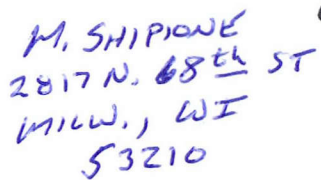 M. SHIPIONE
2817 N. 68th ST
MILW., WI
53210